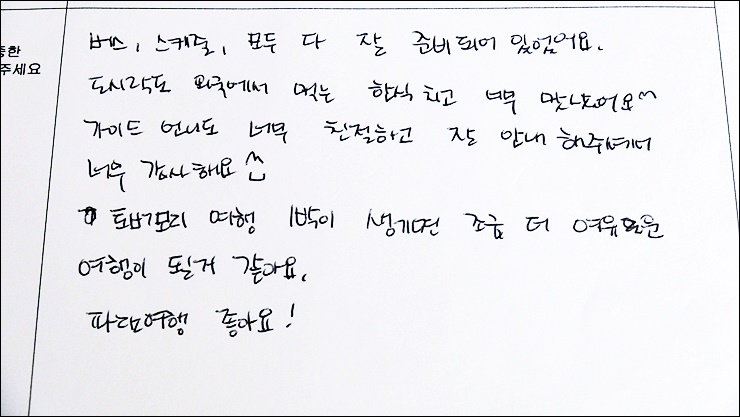 중한
주세요
버스, 스케줄, 모두 다 잘 준비되어 있었어요.
도시락도 외국에서 먹는 한식 치고 너무 맛났어요^^
가이드 언니도 너무 친절하고 잘 안내해주셔서
너무 감사해요 ^^
여행 1박이 생기면 조금 더 여유로운
여행이 될거 같아요.
파람여행 좋아요!